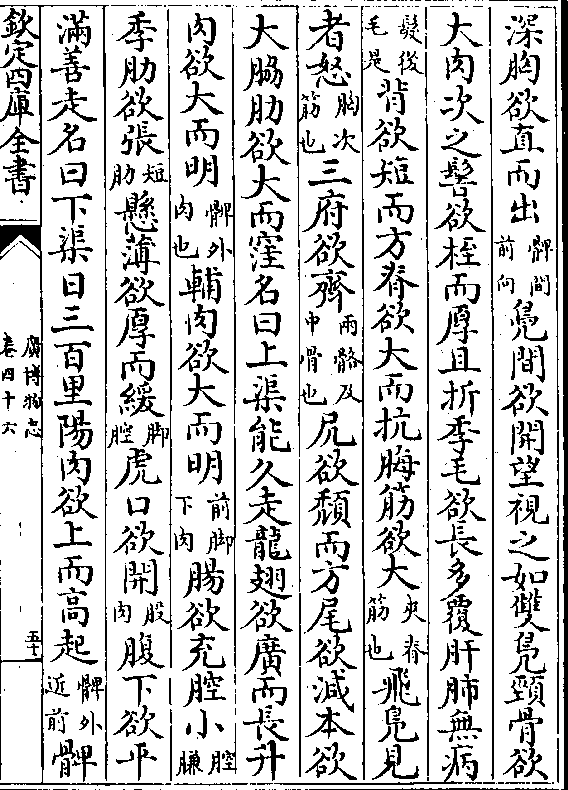 深胸欲直而出髀間前向鳧間欲開望視之如雙鳧頸骨欲
大肉次之髻欲桎而厚且折季毛欲長多覆肝肺無病
髮後毛是背欲短而方脊欲大而抗脢筋欲大夾脊筋也飛鳧見
者怒胸次筋也三府欲齊兩髂及中骨也尻欲頹而方尾欲減本欲
大脇肋欲大而窪名曰上渠能久走龍翅欲廣而長升
肉欲大而明髀外肉也輔肉欲大而明前脚下肉腸欲充腔小腔膁
季肋欲張短肋懸薄欲厚而緩脚腔虎口欲開股肉腹下欲平
滿善走名曰下渠日三百里陽肉欲上而高起髀外近前髀
欽定四庫全書
廣博物志
卷四十六
五十